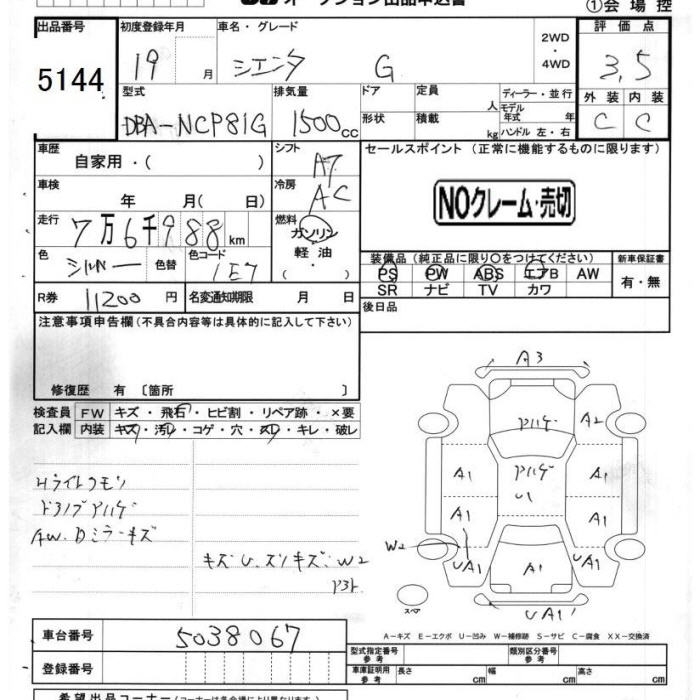 オークション出品申込書
①会場控
出品番号 初度登録年月 車名・グレード 2WD ・ 4WD 評価点
5144 19 月 シエンタ G 3,5
型式 排気量 ドア 定員 人 ディーラー・並行 外装 内装
DBA-NCP81G 1500cc 形状 積載 kg モデル年式 年 ハンドル 左・右 C C
車歴 自家用・( ) シフト AT セールスポイント (正常に機能するものに限ります)
車検 年 月( 日) 冷房 AC
NOクレーム・売切
走行 7万6千988km 燃料 ガソリン 軽油 ( ・ )
色 シルバー 色替 色コード 1E7
装備品 (純正品に限り〇をつけてください) 新車保証書
PS PW ABS エアB AW 有・無
SR ナビ TV カワ
R券 11200円 名変通知期限 月 日 後日品
注意事項申告欄(不具合内容等は具体的に記入して下さい)
修復歴 有〔箇所 〕
検査員 FW キズ・飛石・ヒビ割・リペア跡・×要
記入欄 内装 キズ・汚レ・コゲ・穴・スレ・キレ・破レ
A3
アハゲ A2
Hライトクモリ
A1 アハゲ A1
U1
ドアノブアハゲ
A1 A1
AW.Dミラーキズ
W2
キズU.ズリキズ:W2
UA1 A1 UA1
スペア
UA1
A-キズ E-エクボ U-凹み W-補修跡 S-サビ C-腐食 XX-交換済
車台番号 5038067
型式指定番号 参考 類別区分番号 参考
登録番号 車庫証明用 参考 長さ cm 幅 cm 高さ cm
希望出品コーナー(コーナーは各会場により異なります)